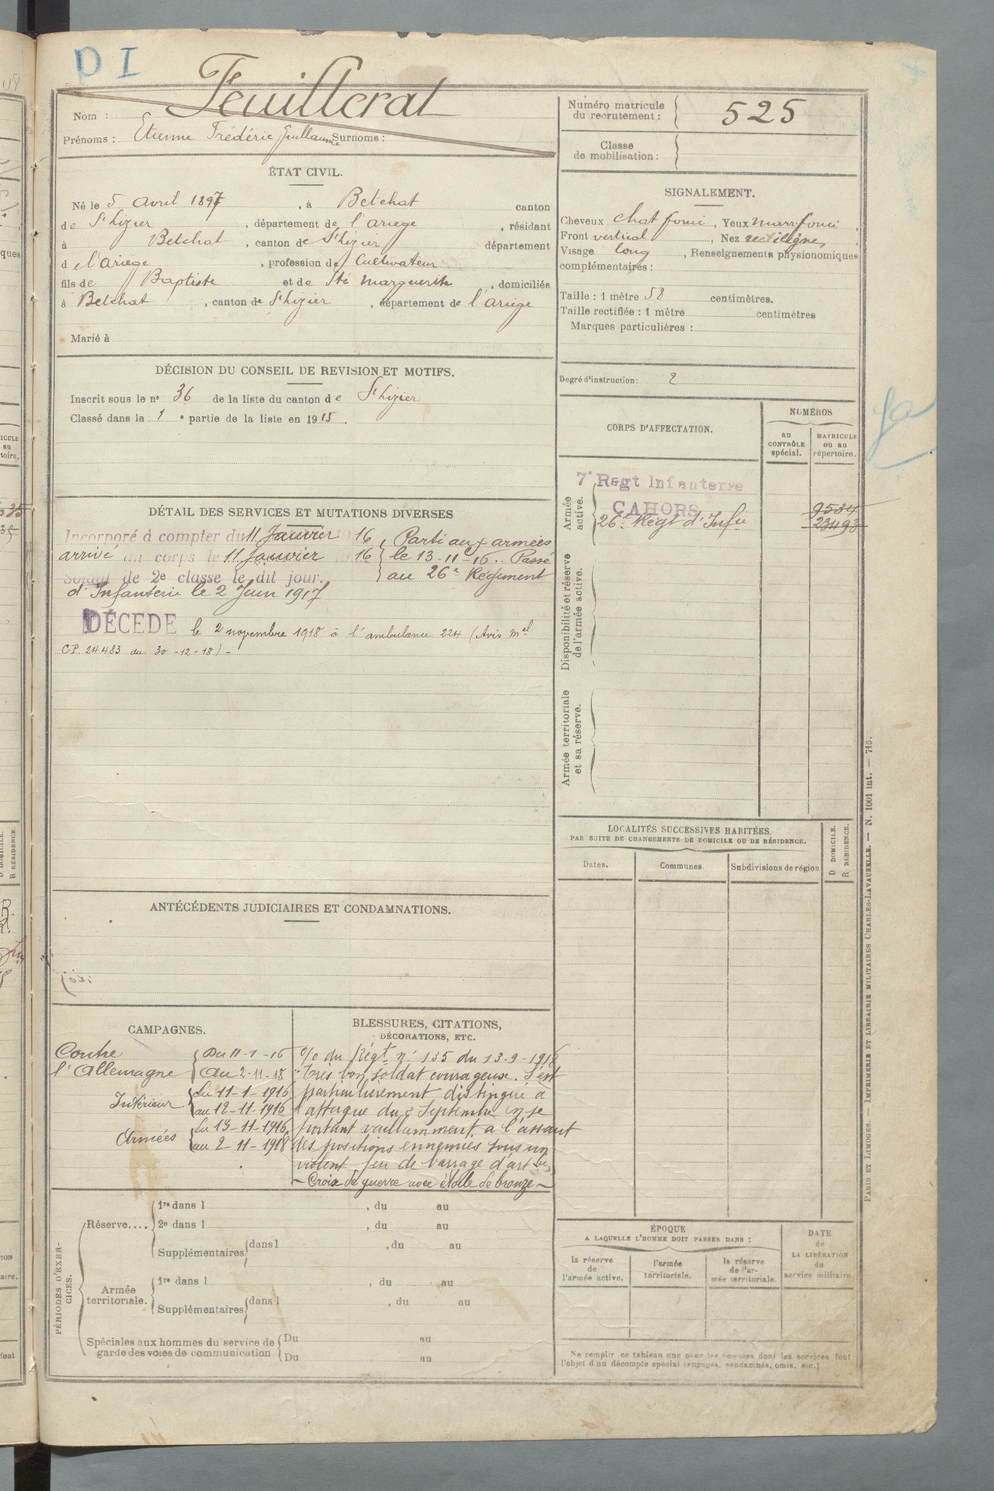 D I
Nom : Feuillerat
Prénoms : Etienne Frédéric Guillaume Surnoms :
Numéro matricule
du recrutement : 525
Classe
de mobilisation :
ÉTAT CIVIL.
Né le 5 avril 1897, à Betchat canton
de St Lizier, département de l'ariège, résidant
à Betchat, canton de St Lizier département
d e l'ariège, profession de Cultivateur
fils de Baptiste et de Sté marguerite, domiciliés
à Betchat, canton de St Lizier, département de l'ariège
Marié à
SIGNALEMENT.
Cheveux chat foncé, Yeux marr foncé
Front vertical, Nez rectiligne,
Visage long, Renseignements physionomiques
complémentaires :
Taille : 1 mètre 58 centimètres.
Taille rectifiée : 1 mètre centimètres
Marques particulières :
Degré d'instruction : 2
DÉCISION DU CONSEIL DE REVISION ET MOTIFS.
Inscrit sous le n° 36 de la liste du canton de St Lizier
Classé dans la 1e partie de la liste en 1915.
CORPS D'AFFECTATION.
NUMÉROS
au
CONTRÔLE
spécial.
MATRICULE
ou au
répertoire.
Armée
active.
7e Regt Infanterie
CAHORS 9534
26e Régt d'Infie 23493
Disponibilité et réserve
de l'armée active.
Armée territoriale
et sa réserve.
DÉTAIL DES SERVICES ET MUTATIONS DIVERSES
Incorporé à compter du 11 Janvier 1916, Parti aux armées
arrivé au corps le 11 Janvier 1916 le 13-11-16. Passé
Soldat de 2e classe le dit jour. au 26e Régiment
d'Infanterie le 2 Juin 1917
DÉCÉDÉ le 2 novembre 1918 à l'ambulance 224 (Avis Mel
CP. 24483 du 30-12-18) -
LOCALITÉS SUCCESSIVES HABITÉES
PAR SUITE DE CHANGEMENTS DE DOMICILE OU DE RÉSIDENCE.
Dates.
Communes.
Subdivisions de région
D DOMICILE.
R RÉSIDENCE.
ANTÉCÉDENTS JUDICIAIRES ET CONDAMNATIONS.
CAMPAGNES.
Contre Du 11-1-16
l'Allemagne Au 2-11-18
Intérieur du 11-1-1916
au 12-11-1916
Armées du 13-11-1916
au 2-11-1918
BLESSURES, CITATIONS,
DÉCORATIONS, ETC.
O/ du Régt n° 135 du 13-9-1918
"Très bon soldat courageux. S'est
particulièrement distingué à
l'attaque du 2 Septembre en se
portant vaillamment à l'assaut
des positions ennemies sous un
violent feu de barrage d'artie"
- Croix de guerre avec étoile de bronze -
PÉRIODES D'EXER-
CICES.
Réserve.... 1re dans l , du au
2e dans l , du au
Supplémentaires dans l , du au
Armée
territoriale. 1re dans l , du au
Supplémentaires dans l , du au
Spéciales aux hommes du service de
garde des voies de communication Du au
Du au
ÉPOQUE
A LAQUELLE L'HOMME DOIT PASSER DANS :
la réserve
de
l'armée active.
l'armée
territoriale.
la réserve
de l'ar-
mée territoriale.
DATE
de
LA LIBÉRATION
du
service militaire.
Ne remplir ce tableau que pour les hommes dont les services font
l'objet d'un décompte spécial (engagés, condamnés, omis, etc.)
PARIS ET LIMOGES. — IMPRIMERIE ET LIBRAIRIE MILITAIRES CHARLES-LAVAUZELLE. — N. 1001 int. — 715.